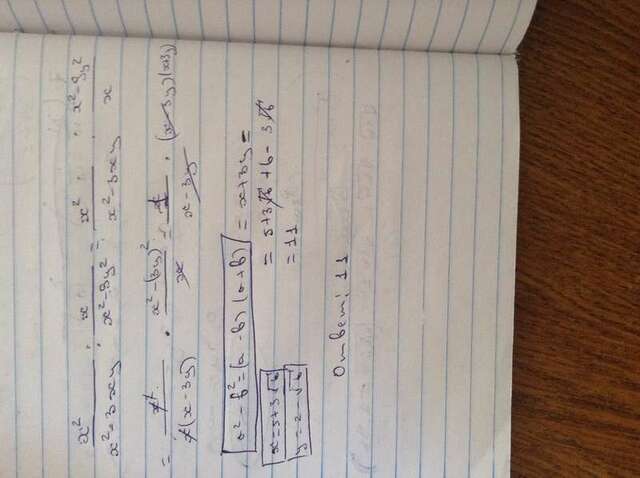 x² / (x² - 3xy) : x / (x² - 9y²) = x² / (x² - 3xy) · (x² - 9y²) / x
= x² / (x(x - 3y)) · (x² - (3y)²) / x = x / (x - 3y) · (x - 3y)(x+3y)
a² - b² = (a - b)(a+b) = x+3y =
x = 5+3√6 = 5+3√6 + 6 - 3√6
y = 2 - √6 = 11
Ответ: 11